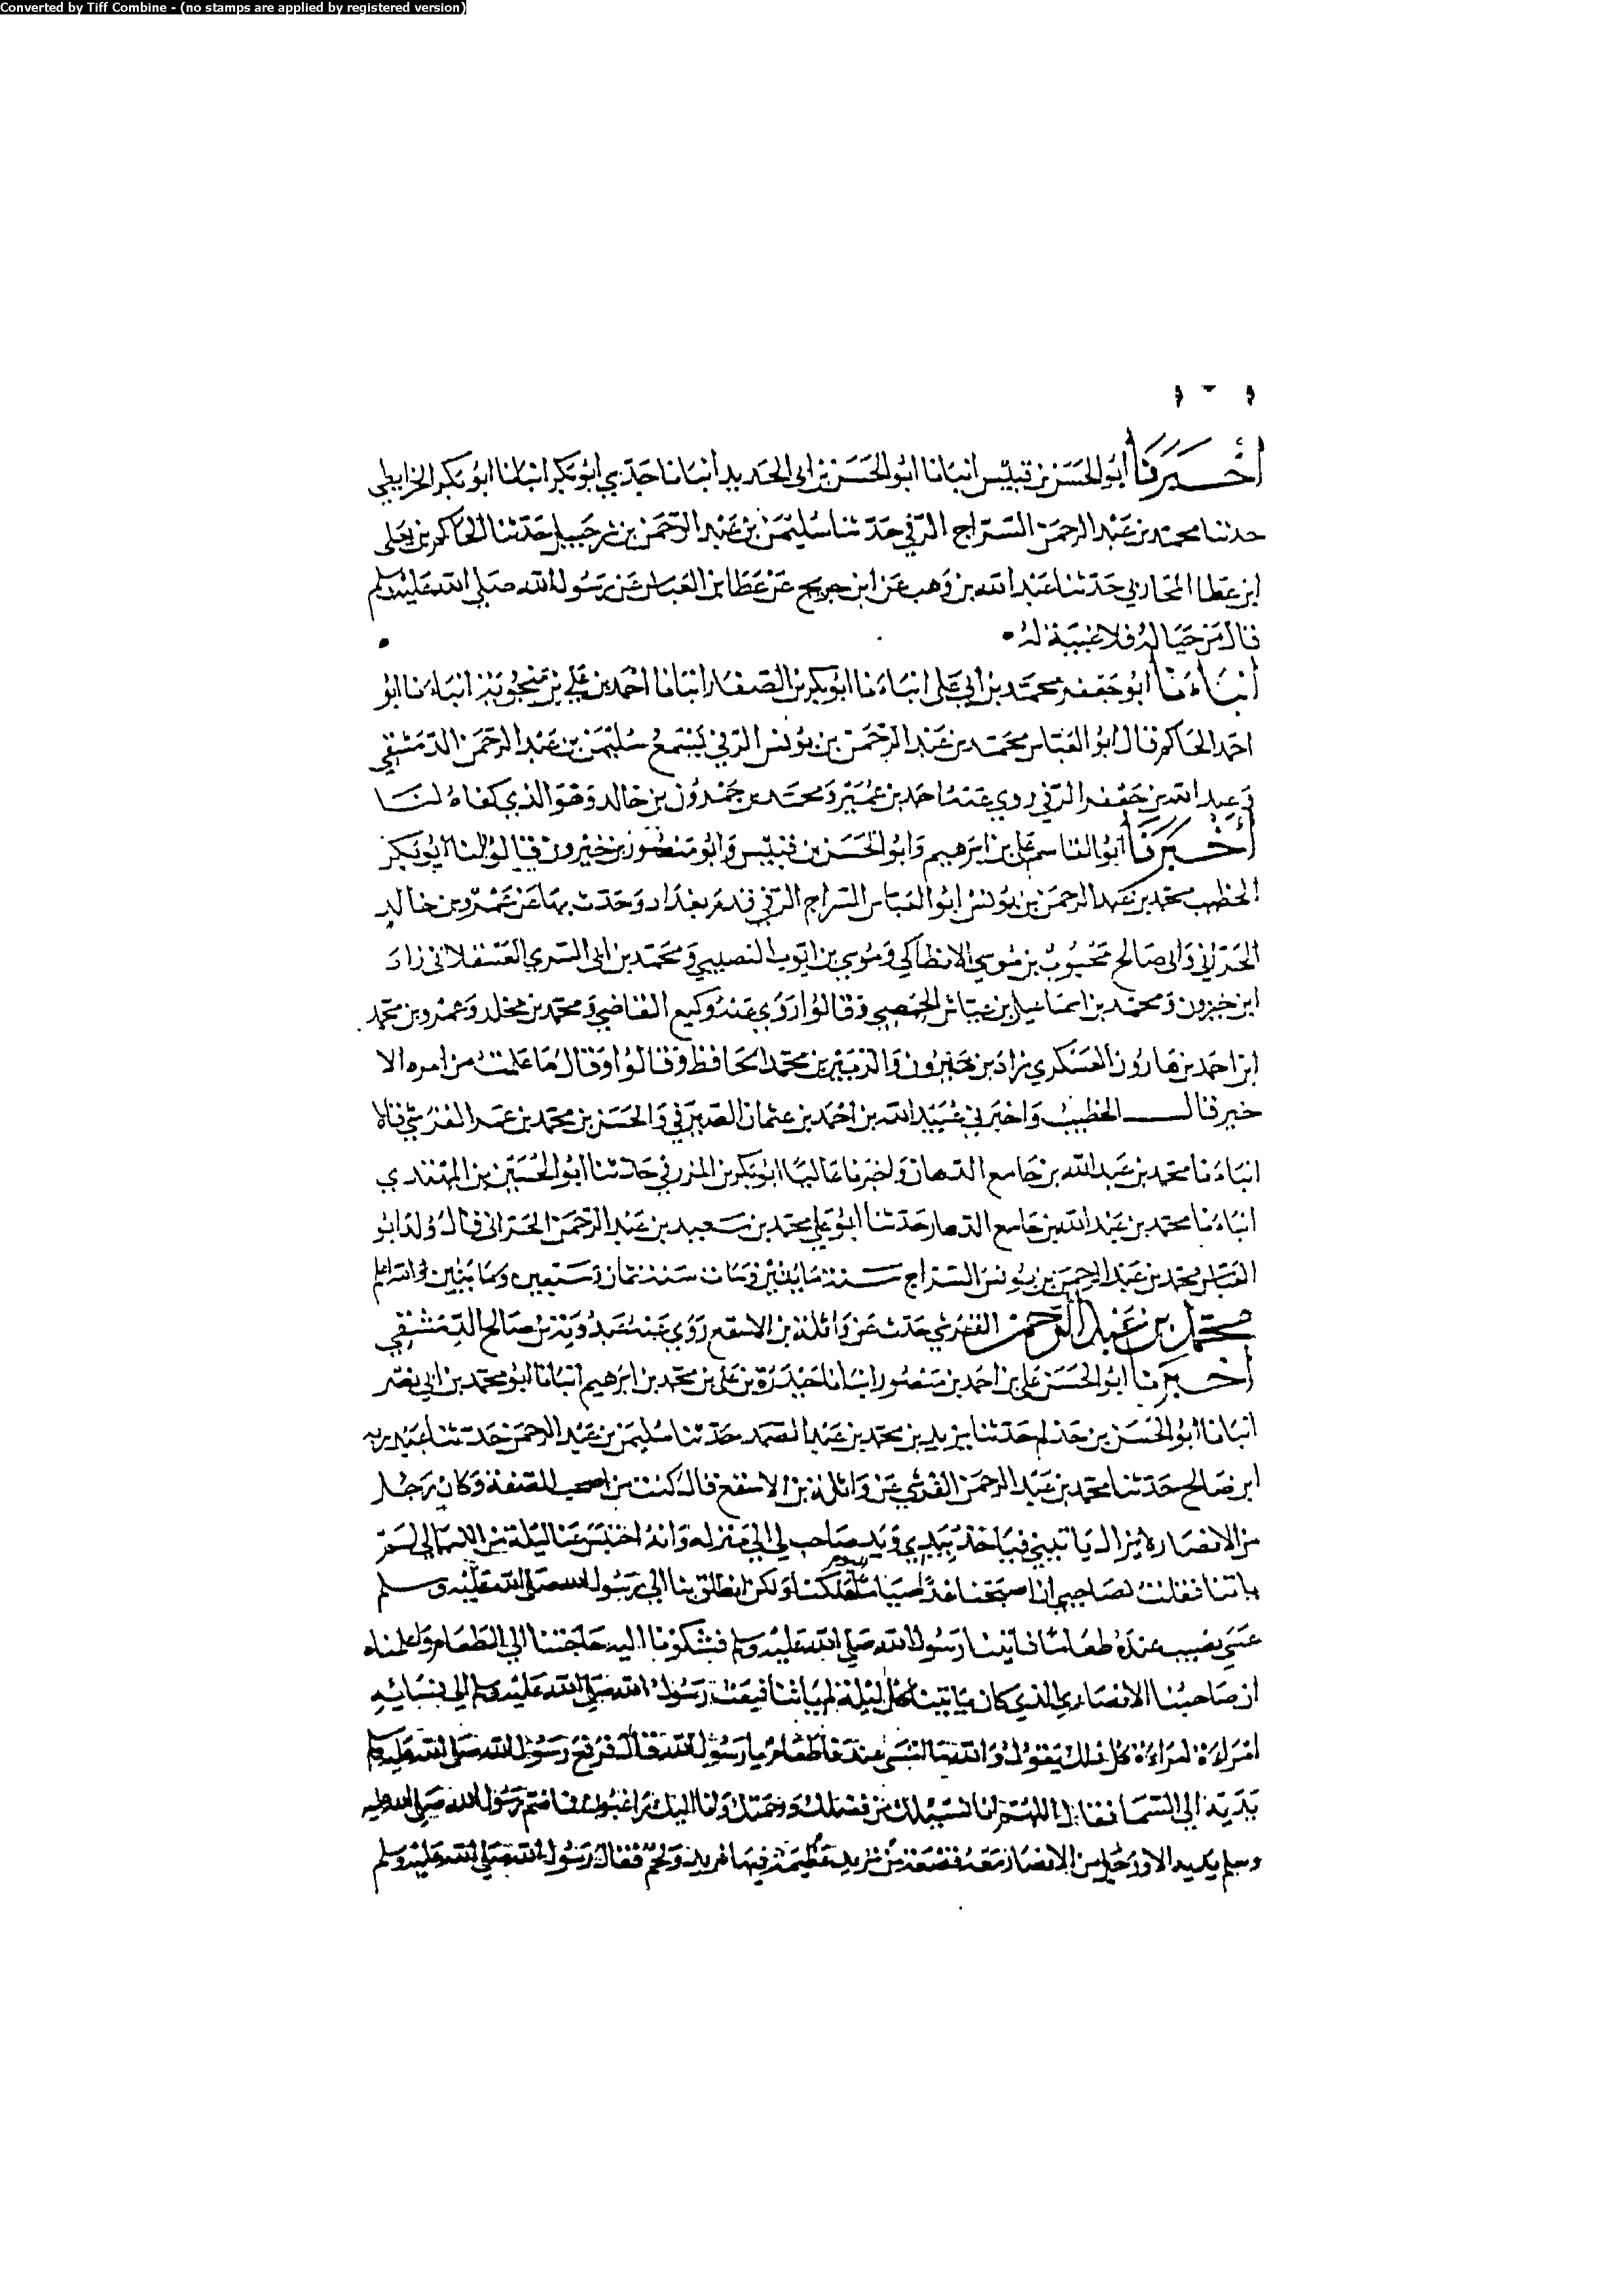 Converted by Tiff Combine - (no stamps are applied by registered version)
أخبرنا أبو الحسن بن قبيس انبانا ابو الحسن بن ابي الحديد انبانا جدي ابو بكر انبانا ابو بكر الخرايطي
حدثنا محمد بن عبد الرحمن السراج الرقي حدثنا سليمن بن عبد الرحمن بن شرحبيل حدثنا الحاكم بن يعلى
ابن عطا المحاربي حدثنا عبد الله بن وهب عن ابن جريج عن عطا بن العباس عن رسول الله صلى الله عليه وسلم
قال من حيا له فلا غيبة له
أنباءنا ابو جعفر محمد بن ابي علي انباءنا ابو بكر بن الصفار انبانا احمد بن علي بن منجويه انباءنا ابو
احمد الحاكم قال ابو العباس محمد بن عبد الرحمن بن يونس الرقي يسمع سليمن بن عبد الرحمن الدمشقي
وعبد الله بن جعفر الرقي روي عنه احمد بن عمير ومحمد بن حمدون بن خالد وهو الذي كناه لنا
أخبرنا أبو القاسم علي بن ابرهيم وابو الحسن بن قبيس وابو منصور بن خيرون قالوا لنا ابو بكر
الخطيب محمد بن عبد الرحمن بن يونس ابو العباس السراج الرقي قدم بغداد وحدث بها عن عمرو بن خالد
الحراني وابي صالح محبوب بن موسى الانطاكي وموسى بن ايوب النصيبي ومحمد بن ابي السري العسقلاني زاد
ابن خيرون ومحمد بن اسماعيل بن عياش الحمصي وقالوا روى عنه وكيع القاضي ومحمد بن مخلد وعمرو بن محمد
ابن احمد بن هارون العسكري زاد بن خيرون والزبير بن محمد الحافظ وقالوا وقال ما علمت من امره الا
خير قال الخطيب واخبرني عبيد الله بن احمد بن عثمان الصيرفي والحسن بن محمد بن عمر القرشي قالا
انباءنا محمد بن عبد الله بن جامع الدهان واخبرنا عاليا ابو بكر بن المزرفي حدثنا ابو الحسين بن المهتدي
انباءنا محمد بن عبد الله بن جامع الدهان حدثنا ابو علي محمد بن سعيد بن عبد الرحمن الحراني قال ولد ابو
العباس محمد بن عبد الرحمن بن يونس السراج سنة مايتين ومات سنة ثمان وسبعين ومايتين والله اعلم
محمد بن عبد الرحمن القرشي حدث عن واثلة بن الاسقع روى عنه عبد ربه بن صالح الدمشقي
أخبرنا ابو الحسن علي بن احمد بن منصور انبانا حيدرة بن علي بن محمد بن ابرهيم انبانا ابو محمد بن ابي نصر
انبانا أبو الحسن بن حذلم حدثنا يزيد بن محمد بن عبد الصمد حدثنا سليمن بن عبد الرحمن حدثنا عبد ربه
ابن صالح حدثنا محمد بن عبد الرحمن القرشي عن واثلة بن الاسقع قال كنت من اصحب الصفة وكان رجل
من الانصار لا يزال ياتيني فياخذ بيدي ويد صاحب لي الى منزله وانه احتبس عنا ليلة من الليالي لم
ياتنا فقلت لصاحبي ان اصبحنا غدا صياما هلكنا ولكن انطلق بنا الى رسول الله صلى الله عليه وسلم
عسى نصيب عنده طعاما فاتينا رسول الله صلى الله عليه وسلم فشكونا اليه حاجتنا الى الطعام واعلمناه
ان صاحبنا الانصاري الذي كان ياتينا كل ليلة لم ياتنا فبعث رسول الله صلى الله عليه وسلم الى نسائه
امراة امراءة كل ذلك يقول والله ما امسى عندها طعام يا رسول الله قال فرفع رسول الله صلى الله عليه وسلم
يديه الى السما فقال اللهم انا نسئلك من فضلك ورحمتك وانا اليك راغبون فما ضم رسول الله صلى الله عليه
وسلم يديه الا ورجل من الانصار معه قصعة من ثريد عظيمة فيها ثريد ولحم فقال رسول الله صلى الله عليه وسلم